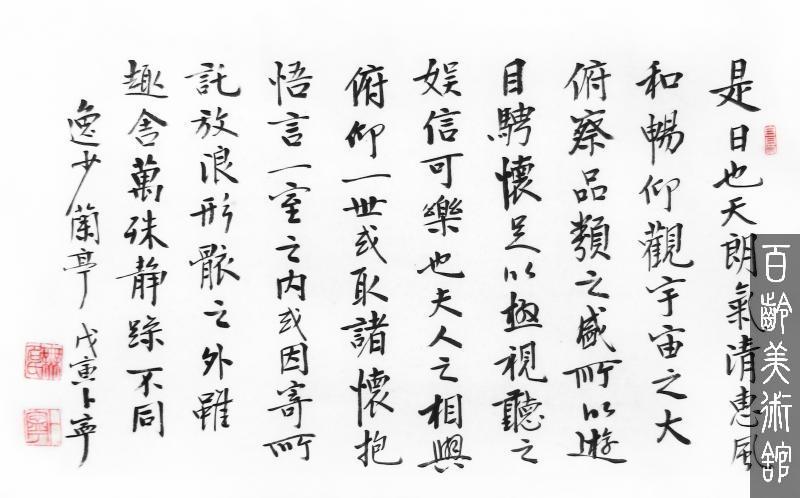 是日也天朗氣清惠風
和暢仰觀宇宙之大
俯察品類之盛所以遊
目騁懷足以極視聽之
娛信可樂也夫人之相與
俯仰一世或取諸懷抱
悟言一室之内或因寄所
託放浪形骸之外雖
趣舍萬殊静躁不同
逸少蘭亭 戊寅卜寧
百齡美術館